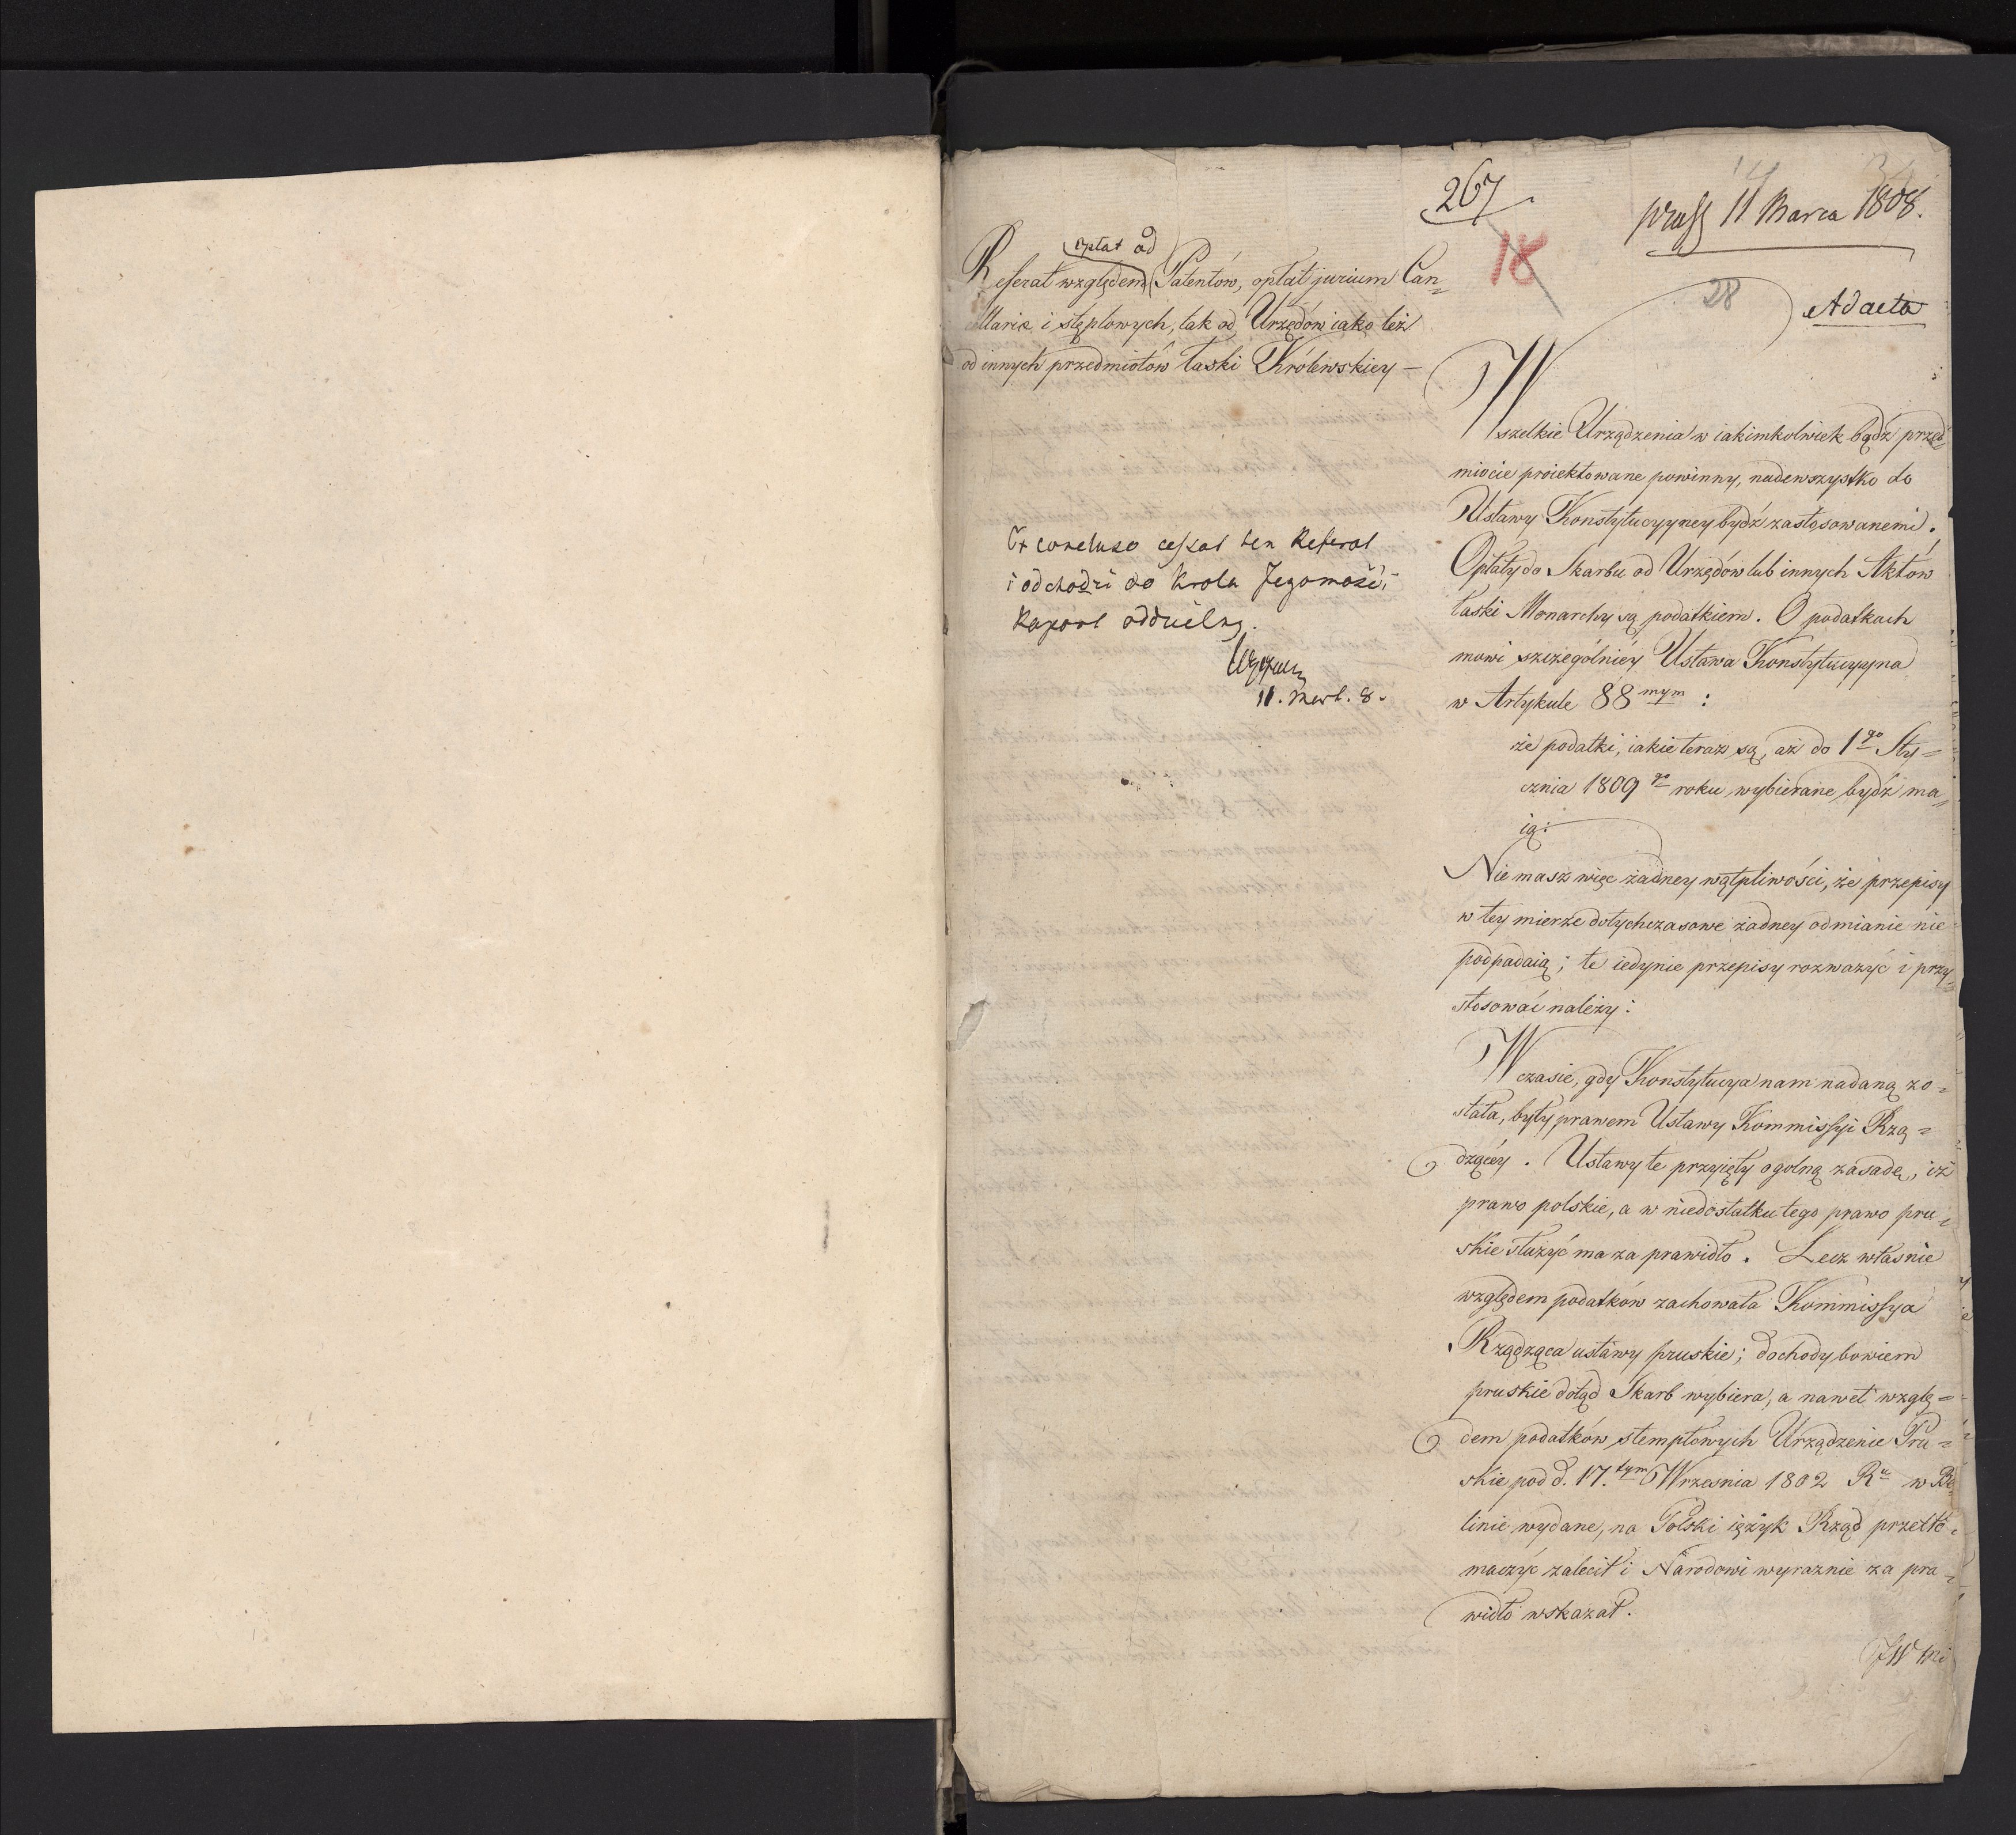 267
praes 11 Marca 1808.
18
28
Ad acta
opłat od
Referat względem Patentów, opłat jurium Can„
cellariæ i stęplowych, tak od Urzędów iako też
od innych przedmiotów łaski Królewskiey –
Ex concluso cessat ten Referat
i odchodzi do Krola Jegomości
Raport oddzielny.
11. Mart. 8.
Wszelkie Urządzenia w iakimkolwiek bądź przed„
miocie proiektowane powinny, nadewszystko do
Ustawy Konstytucyyney bydź zastosowanemi.
Opłaty do Skarbu od Urzędów lub innych Aktów
łaski Monarchy są podatkiem. O podatkach
mowi szczególniéy Ustawa Konstytucyyna
w Artykule 88mym :
że podatki, iakie teraz są, aż do 1go Sty=
cznia 1809go roku wybierane bydź ma„
ią:
Nie masz więc żadney wątpliwości, że przepisy
w tey mierze dotychczasowe żadney odmianie nie
podpadaią; te iedynie przepisy rozważyć i przy„
stosować należy:
W czasie, gdy Konstytucya nam nadaną zo=
stała, były prawem Ustawy Kommissyi Rzą=
dzącéy. Ustawy te przyięły ogolną zasadę, iż
prawo polskie, a w niedostatku tego prawo pru„
skie służyć ma za prawidło. Lecz własnie
względem podatków zachowała Kommissya
Rządząca ustawy pruskie; dochody bowiem
pruskie dotąd Skarb wybiera, a nawet wzglę=
dem podatków stemplowych Urządzenie Pru=
skie pod d. 17.tym Wrzesnia 1802 Ru w Be„
linie wydane, na Polski ięzyk Rząd przetło„
maczyć zalecił i Narodowi wyraznie za pra„
widło wskazał.
JW Mi